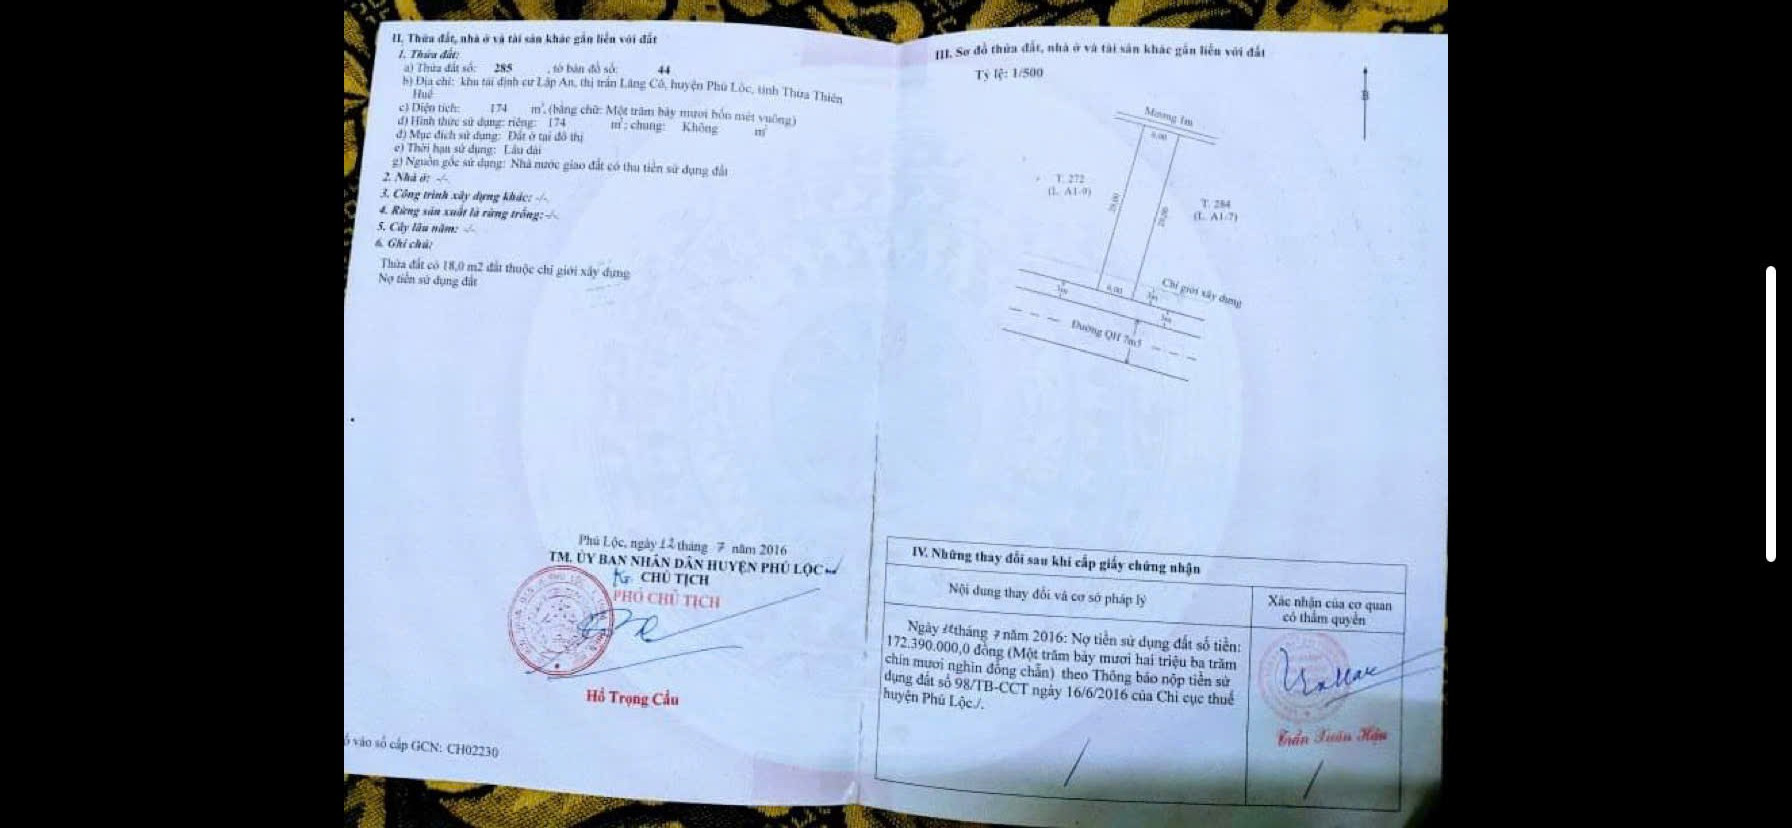 II. Thửa đất, nhà ở và tài sản khác gắn liền với đất
1. Thửa đất:
a) Thửa đất số: 285 , tờ bản đồ số: 44
b) Địa chỉ: khu tái định cư Lập An, thị trấn Lăng Cô, huyện Phú Lộc, tỉnh Thừa Thiên
Huế
c) Diện tích: 174 m², (bằng chữ: Một trăm bảy mươi bốn mét vuông)
d) Hình thức sử dụng: riêng: 174 m²; chung: Không m²
đ) Mục đích sử dụng: Đất ở tại đô thị
e) Thời hạn sử dụng: Lâu dài
g) Nguồn gốc sử dụng: Nhà nước giao đất có thu tiền sử dụng đất
2. Nhà ở: -/-
3. Công trình xây dựng khác: -/-
4. Rừng sản xuất là rừng trồng: -/-
5. Cây lâu năm: -/-
6. Ghi chú:
Thửa đất có 18,0 m2 đất thuộc chỉ giới xây dựng
Nợ tiền sử dụng đất
Phú Lộc, ngày 12 tháng 7 năm 2016
TM. ỦY BAN NHÂN DÂN HUYỆN PHÚ LỘC
KT. CHỦ TỊCH
PHÓ CHỦ TỊCH
Hồ Trọng Cầu
vào sổ cấp GCN: CH02230
III. Sơ đồ thửa đất, nhà ở và tài sản khác gắn liền với đất
Tỷ lệ: 1/500
B
Mương 1m
6,00
T. 272
(L. A1-9)
29,00
29,00
T. 284
(L. A1-7)
Chỉ giới xây dựng
3m
6,00
3m
3m
Đường QH 7m5
IV. Những thay đổi sau khi cấp giấy chứng nhận
Nội dung thay đổi và cơ sở pháp lý
Xác nhận của cơ quan
có thẩm quyền
Ngày tháng 7 năm 2016: Nợ tiền sử dụng đất số tiền:
172.390.000,0 đồng (Một trăm bảy mươi hai triệu ba trăm
chín mươi nghìn đồng chẵn) theo Thông báo nộp tiền sử
dụng đất số 98/TB-CCT ngày 16/6/2016 của Chi cục thuế
huyện Phú Lộc./.
Trần Xuân Hậu